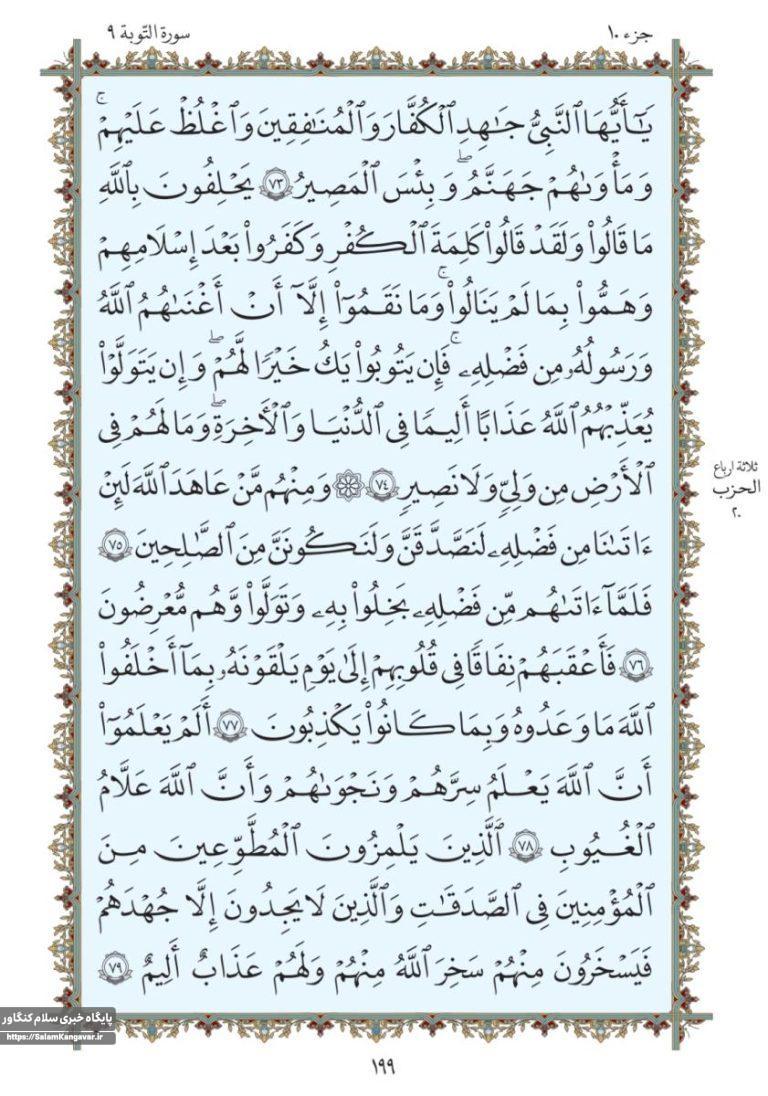 جزء ١٠
سورة التّوبة ٩
يَـٰٓأَيُّهَا ٱلنَّبِىُّ جَـٰهِدِ ٱلْكُفَّارَ وَٱلْمُنَـٰفِقِينَ وَٱغْلُظْ عَلَيْهِمْ ۚ
وَمَأْوَىٰهُمْ جَهَنَّمُ ۖ وَبِئْسَ ٱلْمَصِيرُ ٧٣ يَحْلِفُونَ بِٱللَّهِ
مَا قَالُوا۟ وَلَقَدْ قَالُوا۟ كَلِمَةَ ٱلْكُفْرِ وَكَفَرُوا۟ بَعْدَ إِسْلَـٰمِهِمْ
وَهَمُّوا۟ بِمَا لَمْ يَنَالُوا۟ ۚ وَمَا نَقَمُوٓا۟ إِلَّآ أَنْ أَغْنَىٰهُمُ ٱللَّهُ
وَرَسُولُهُۥ مِن فَضْلِهِۦ ۚ فَإِن يَتُوبُوا۟ يَكُ خَيْرًا لَّهُمْ ۖ وَإِن يَتَوَلَّوْا۟
يُعَذِّبْهُمُ ٱللَّهُ عَذَابًا أَلِيمًا فِى ٱلدُّنْيَا وَٱلْـَٔاخِرَةِ ۚ وَمَا لَهُمْ فِى
ٱلْأَرْضِ مِن وَلِىٍّ وَلَا نَصِيرٍ ٧٤ ۞ وَمِنْهُم مَّنْ عَـٰهَدَ ٱللَّهَ لَئِنْ
ءَاتَىٰنَا مِن فَضْلِهِۦ لَنَصَّدَّقَنَّ وَلَنَكُونَنَّ مِنَ ٱلصَّـٰلِحِينَ ٧٥
فَلَمَّآ ءَاتَىٰهُم مِّن فَضْلِهِۦ بَخِلُوا۟ بِهِۦ وَتَوَلَّوا۟ وَّهُم مُّعْرِضُونَ
٧٦ فَأَعْقَبَهُمْ نِفَاقًا فِى قُلُوبِهِمْ إِلَىٰ يَوْمِ يَلْقَوْنَهُۥ بِمَآ أَخْلَفُوا۟
ٱللَّهَ مَا وَعَدُوهُ وَبِمَا كَانُوا۟ يَكْذِبُونَ ٧٧ أَلَمْ يَعْلَمُوٓا۟
أَنَّ ٱللَّهَ يَعْلَمُ سِرَّهُمْ وَنَجْوَىٰهُمْ وَأَنَّ ٱللَّهَ عَلَّـٰمُ
ٱلْغُيُوبِ ٧٨ ٱلَّذِينَ يَلْمِزُونَ ٱلْمُطَّوِّعِينَ مِنَ
ٱلْمُؤْمِنِينَ فِى ٱلصَّدَقَـٰتِ وَٱلَّذِينَ لَا يَجِدُونَ إِلَّا جُهْدَهُمْ
فَيَسْخَرُونَ مِنْهُمْ سَخِرَ ٱللَّهُ مِنْهُمْ وَلَهُمْ عَذَابٌ أَلِيمٌ ٧٩
ثلاثة ارباع
الحزب
٢٠
پایگاه خبری سلام کنگاور
https://SalamKangavar.ir
١٩٩